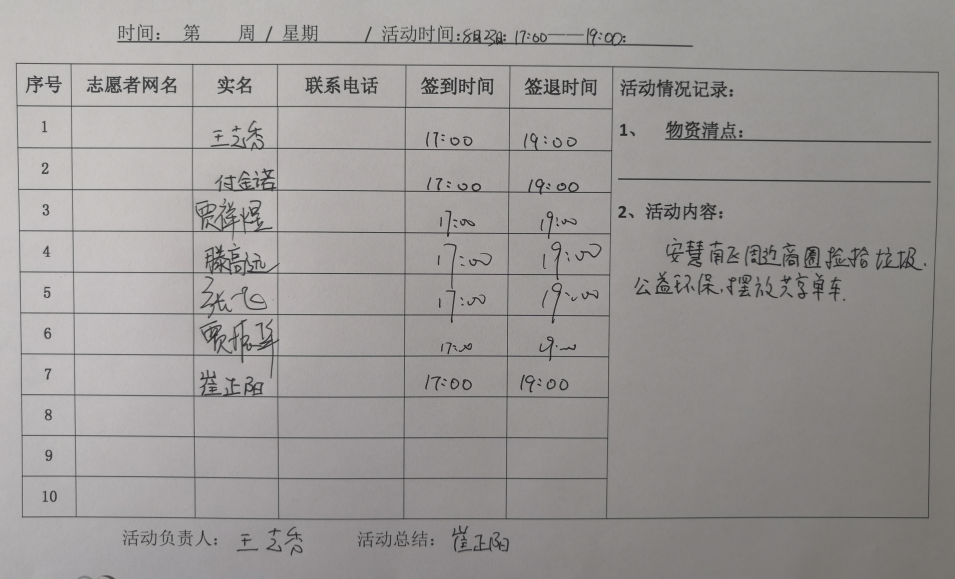 时间： 第 周 / 星期 / 活动时间：8月23日：17:00——19:00：
序号 志愿者网名 实名 联系电话 签到时间 签退时间 活动情况记录：
1 王志秀 17:00 19:00 1、 物资清点：
2 付金诺 17:00 19:00
3 贾祥煜 17:00 19:00 2、活动内容：
4 滕高远 17:00 19:00 安慧南区周边商圈捡拾垃圾，
5 张飞 17:00 19:00 公益环保，摆放共享单车.
6 贾 17:00 19:00
7 崔正阳 17:00 19:00
8
9
10
活动负责人： 王志秀 活动总结： 崔正阳